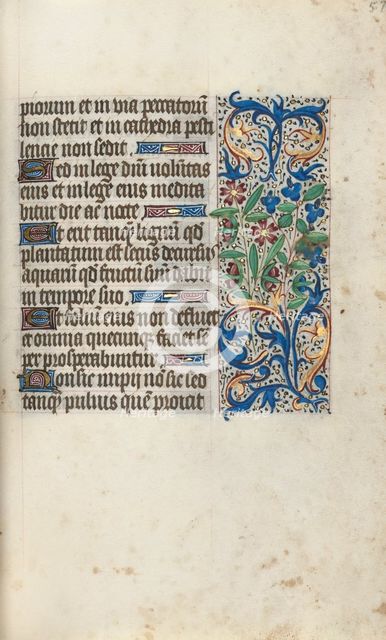 57
piorum et in via peccatorũ
non stetit et in cathedra pesti
lencie non sedit.
Sed in lege dñi volũtas
eius et in lege eius medita
bitur die ac nocte.
Et erit tanq̃ lignũ qd̃
plantatum est secus decursus
aquarũ qd̃ fructũ suũ dabit
in tempore suo.
Et foliũ eius non defluet
et omnia quecunq̃ faciet se
per prosperabuntur.
Non sic impij nõ sic sed
tanq̃ puluis quẽ proicit